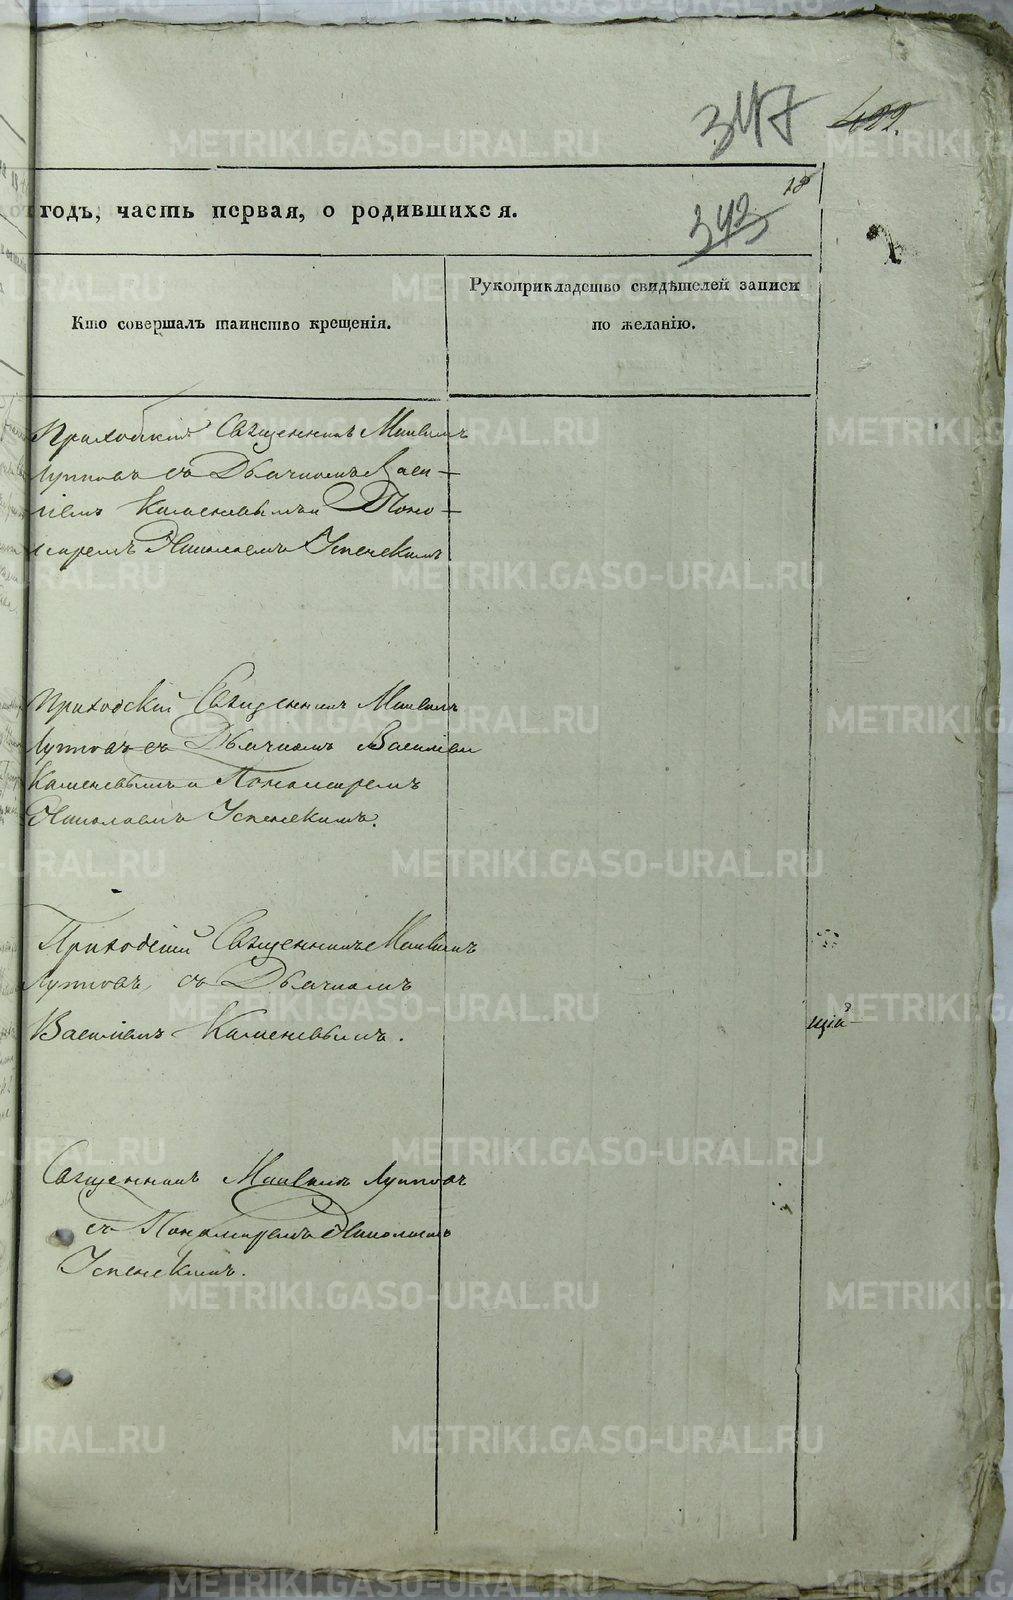 347 422.
18
годъ, часть первая, о родившихся.
343
Кто совершалъ таинство крещенія.
Рукоприкладство свидѣтелей записи
по желанію.
Приходскій Священникъ Михаилъ
Луповъ съ Дьячкомъ Васи-
ліемъ Каменевымъ и Поно-
маремъ Николаемъ Успенскимъ
Приходскій Священникъ Михаилъ
съ Дьячкомъ Василіем
Каменевымъ и Пономаремъ
Николаемъ Успенскимъ.
Приходскій Священникъ Михаилъ
съ Дьячкомъ
Василіемъ Каменевымъ.
цій
Священникъ Михаилъ
съ Пономаремъ Николаемъ
Успенскимъ.
METRIKI.GASO-URAL.RU